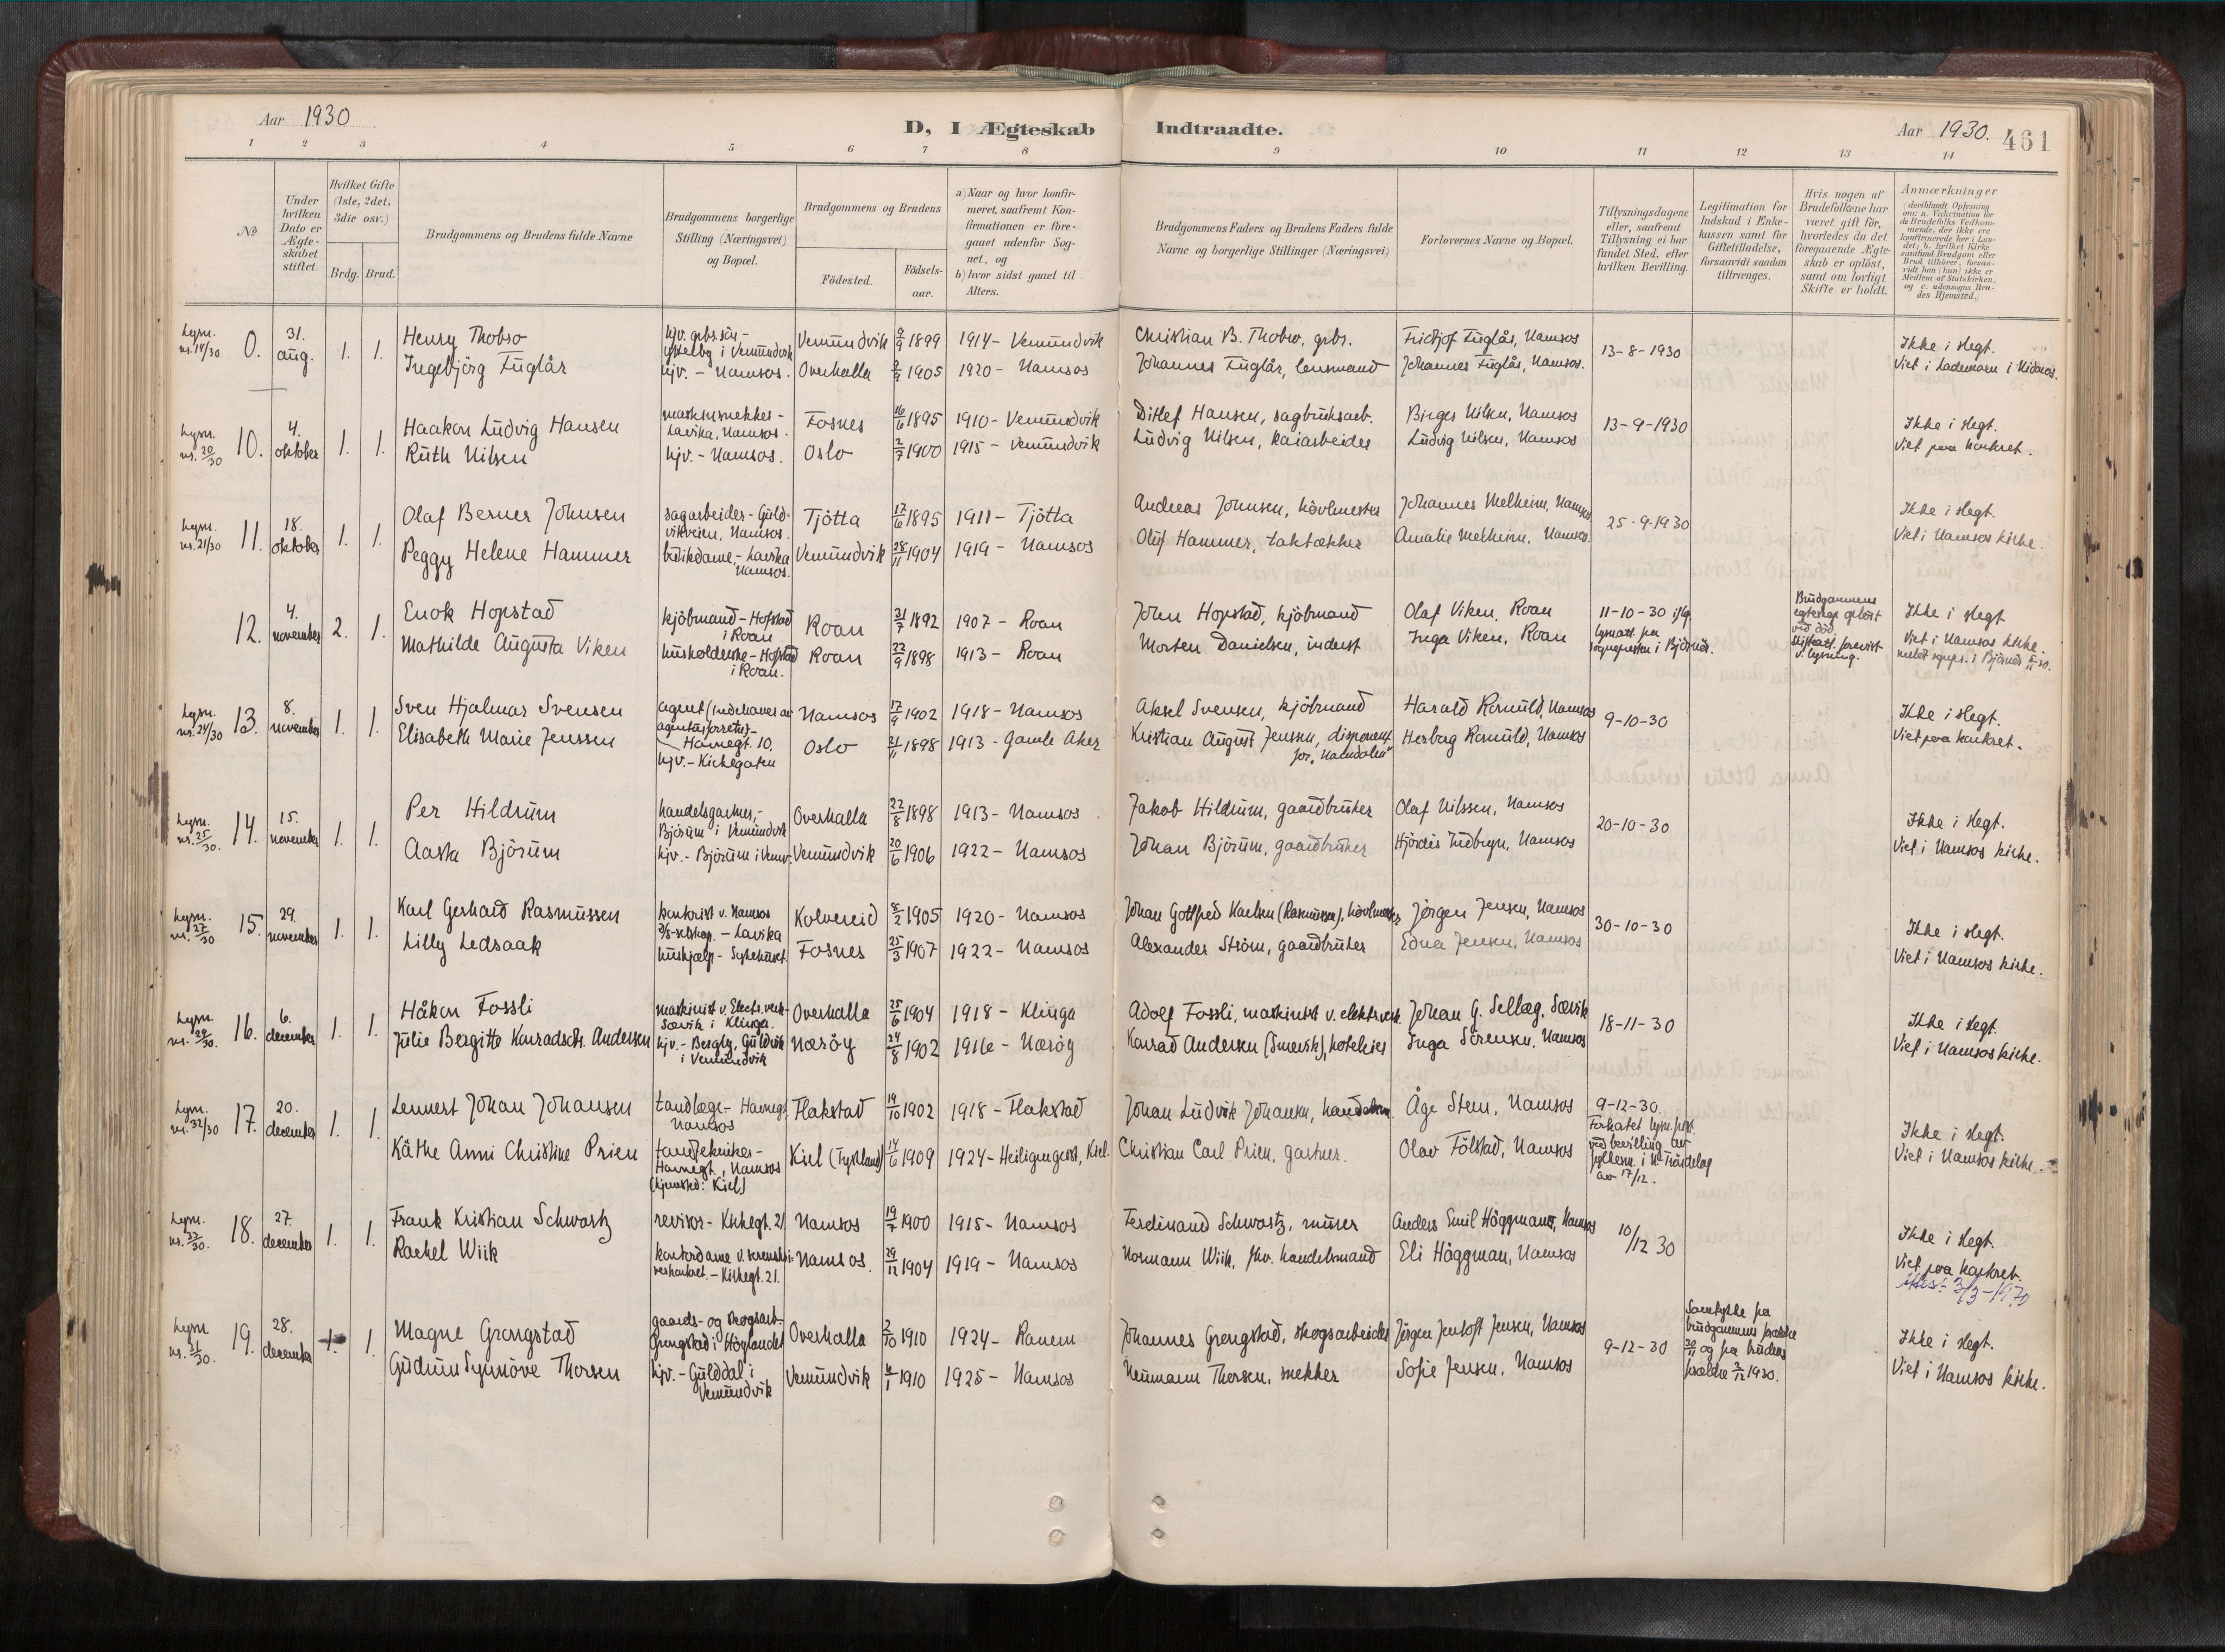 Aar 1930
D, I Ægteskab Indtraadte.
Aar 1930. 461
1 2 3 4 5 6 7 8 9 10 11 12 13 14
№
Under hvilken Dato er Ægteskabet stiftet.
Hvilket Gifte (1ste, 2det, 3die osv.)
Brdg. Brud.
Brudgommens og Brudens fulde Navne
Brudgommens borgerlige Stilling (Næringsvei) og Bopæl.
Brudgommens og Brudens
Fødested. Fødselsaar.
a) Naar og hvor konfirmeret, saafremt Konfirmationen er foregaaet udenfor Sognet, og
b) hvor sidst gaaet til Alters.
Brudgommens Faders og Brudens Faders fulde Navne og borgerlige Stillinger (Næringsvei)
Forlovernes Navne og Bopæl.
Tillysningsdagene eller, saafremt Tillysning ei har fundet Sted, efter hvilken Bevilling.
Legitimation for Indskud i Enkekassen samt for Giftetilladelse, forsaavidt saadan tiltrænges.
Hvis nogen af Brudefolkene har været gift før, hvorledes da det foregaaende Ægteskab er opløst, samt om lovligt Skifte er holdt.
Anmærkninger (deriblandt Oplysning om: a. Vakcination for de Brudefolks Vedkommende, der ikke ere konfirmerede her i Landet; b. hvilket Kirkesamfund Brudgom eller Brud tilhører, forsaavidt han (hun) ikke er Medlem af Statskirken, og c. udensogns Brudes Hjemsted.)
lysn. nr. 14/30 0. 31. aug. 1. 1. Henry Thobro Vemundvik 9/9 1899 1914 - Vemundvik Christian B. Thobro, grbr. Fridtjof Fuglår, Namsos 13-8-1930 Ikke i slegt.
Ingebjörg Fuglår hjv. - Namsos. Overhalla 1905 1920 - Namsos Johannes Fuglår, lensmand Johannes Fuglår, Namsos. Viet i Lademoen i Nidaros.
lysn. nr. 20/30 10. 4. oktober 1. 1. Haakon Ludvig Hansen Lavika, Namsos. Fosnes 16/6 1895 1910 - Vemundvik Ditlef Hansen, sagbruksarb. Birger Nilsen, Namsos 13-9-1930 Ikke i slegt.
Ruth Nilsen hjv. - Namsos. Oslo 2/7 1900 1915 - Vemundvik Ludvig Nilsen, kaiarbeider Ludvig Nilsen, Namsos Viet paa kontoret.
lysn. nr. 21/30 11. 18. oktober 1. 1. Olaf Berner Johnsen sagarbeider - Guldvikveien, Namsos. Tjötta 17/6 1895 1911 - Tjötta Andreas Johnsen, hövlmester Johannes Melheim, Namsos 25-9-1930 Ikke i slegt.
Peggy Helene Hammer butikdame, - Lavika Namsos. Vemundvik 28/11 1904 1919 - Namsos Oluf Hammer, taktækker Amalie Melheim, Namsos. Viet i Namsos kirke.
12. 4. november 2. 1. Enok Hopstad kjöbmand - Hofstad i Roan Roan 31/7 1892 1907 - Roan John Hopstad, kjöbmand Olaf Viken, Roan 11-10-30 ifлg. lysnatt. fra sogneprest i Björnör. Brudgommens egteskap oplöst ved död. Skifteatt. forevist v. lysning. Ikke i slegt
Mathilde Augusta Viken husholderske - Hofstad i Roan. Roan 22/9 1898 1913 - Roan Morten Danielsen, inderst Inga Viken, Roan Viet i Namsos kirke.
lysn. nr. 24/30 13. 8. november 1. 1. Sven Hjalmar Svensen agent (indehaver av agenturforretn.) - Havnegt. 10. Namsos 17/9 1902 1918 - Namsos Aksel Svensen, kjöbmand Harald Romuld, Namsos 9-10-30 Ikke i slegt.
Elisabeth Marie Jenssen hjv. - Kirkegaten Oslo 21/11 1898 1913 - Gamle Aker Kristian August Jenssen, disponent for „Namdalen" Herborg Romuld, Namsos Viet paa kontoret.
lysn. nr. 25/30. 14. 15. november 1. 1. Per Hildrum handelsgartner, - Bjørum i Vemundvik Overhalla 22/8 1898 1913 - Namsos Jakob Hildrum, gaardbruker Olaf Nilssen, Namsos 20-10-30 Ikke i slegt.
Aasta Björum hjv. - Björum i Vemv. Vemundvik 20/6 1906 1922 - Namsos Johan Björum, gaardbruker Hjördis Indbryn, Namsos Viet i Namsos kirke.
lysn. nr. 27/30 15. 29. november 1. 1. Karl Gerhard Rasmussen kontorist v. Namsos D/S-selskap. - Lavika Kolvereid 8/2 1905 1920 - Namsos Johan Gottfred Karlsen (Rasmussen), hövlmester Jörgen Jensen, Namsos 30-10-30 Ikke i slegt.
Lilly Ledsaak hushjælp - Sykehuset Fosnes 25/3 1907 1922 - Namsos Alexander Ström, gaardbruker Edna Jensen, Namsos Viet i Namsos kirke.
lysn. nr. 29/30. 16. 6. december 1. 1. Håkon Fossli maskinist v. Elektr.verk - Sævik i Klinga. Overhalla 25/6 1904 1918 - Klinga Adolf Fossli, maskinist v. elektr.verk. Johan G. Sellæg, Sævik 18-11-30 Ikke i slegt.
Julie Bergitte Konradsdtr. Andersen hjv. - Bergly, Guldvik i Vemundvik Nærøy 24/8 1902 1916 - Nærøy Konrad Andersen (Smevik), hoteleier Inga Sörensen, Namsos Viet i Namsos kirke.
lysn. nr. 32/30 17. 20. december 1. 1. Lennert Johan Johansen tandlæge - Havnegt. Namsos Flakstad 19/10 1902 1918 - Flakstad Johan Ludvik Johansen, handelsm. Åge Stene, Namsos 9-12-30. Forkortet lysn. frist. ved bevilling av fylkesm. i N. Tröndelag av 17/12. Ikke i slegt.
Käthe Anni Christine Prien tandtekniker - Havnegt., Namsos (hjemsted: Kiel) Kiel (Tyskland) 14/6 1909 1924 - Heiligengeist, Kiel. Christian Carl Prien, gartner. Olav Fölstad, Namsos Viet i Namsos kirke.
lysn. nr. 33/30. 18. 27. december 1. 1. Frank Kristian Schwartz revisor - Kirkegt. 21 Namsos 19/7 1900 1915 - Namsos Ferdinand Schwartz, murer Anders Emil Häggman, Namsos 10/12 30 Ikke i slegt.
Rachel Wiik - Kirkegt. 21. Namsos. 29/12 1904 1919 - Namsos Normann Wiik, fhv. handelsmand Eli Häggman, Namsos Viet paa kontoret.
lysn. nr. 31/30. 19. 28. december 1. 1. Magne Grongstad gaards- og skogsarb. - Grongstad i Höylandet Overhalla 2/10 1910 1924 - Ranem Johannes Grongstad, skogsarbeider Jörgen Jentoft Jensen, Namsos 9-12-30 Samtykke fra brudgommens forældre 30/11 og fra brudens forældre 2/12 1930. Ikke i slegt.
Gudrun Synnöve Thorsen hjv. - Gulddal i Vemundvik Vemundvik 6/1 1910 1925 - Namsos Neumann Thorsen, snekker Sofie Jensen, Namsos Viet i Namsos kirke.